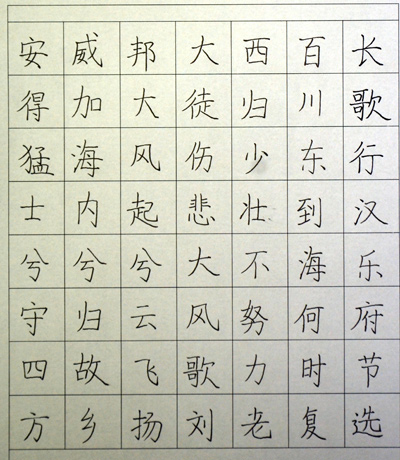 长歌行汉乐府节选
百川东到海何时复
西归少壮不努力老
大徒伤悲大风歌刘
邦大风起兮云飞扬
威加海内兮归故乡
安得猛士兮守四方